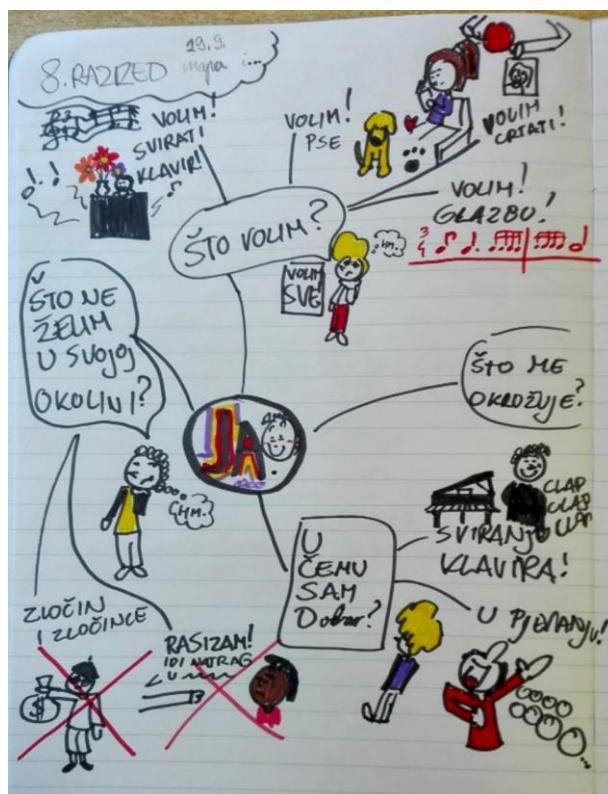 8. RAZRED
19.9.
mapa i...
VOLIM!
SVIRATI
KLAVIR!
VOLIM!
PSE
VOLIM
CRTATI!
VOLIM!
GLAZBU!
3
4
ŠTO VOLIM?
HM.
VOLIM
SVE
ŠTO NE
ŽELIM
U SVOJOJ
OKOLINI?
JA
ŠTO ME
OKRUŽUJE?
HM.
CLAP
CLAP
CLAP
SVIRANJU
KLAVIRA!
U
ČEMU
SAM
Dobar?
U PJEVANJU!
ZLOČIN
I ZLOČINCE
RASIZAM!
IDI NATRAG
U
$